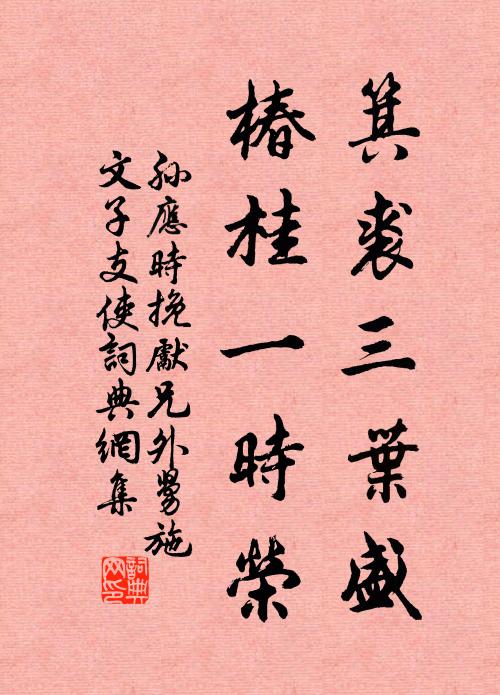 箕裘三葉盛
椿桂一時榮
孫應時挽獻兄外舅施
文子支使詞典網集
詞典网印